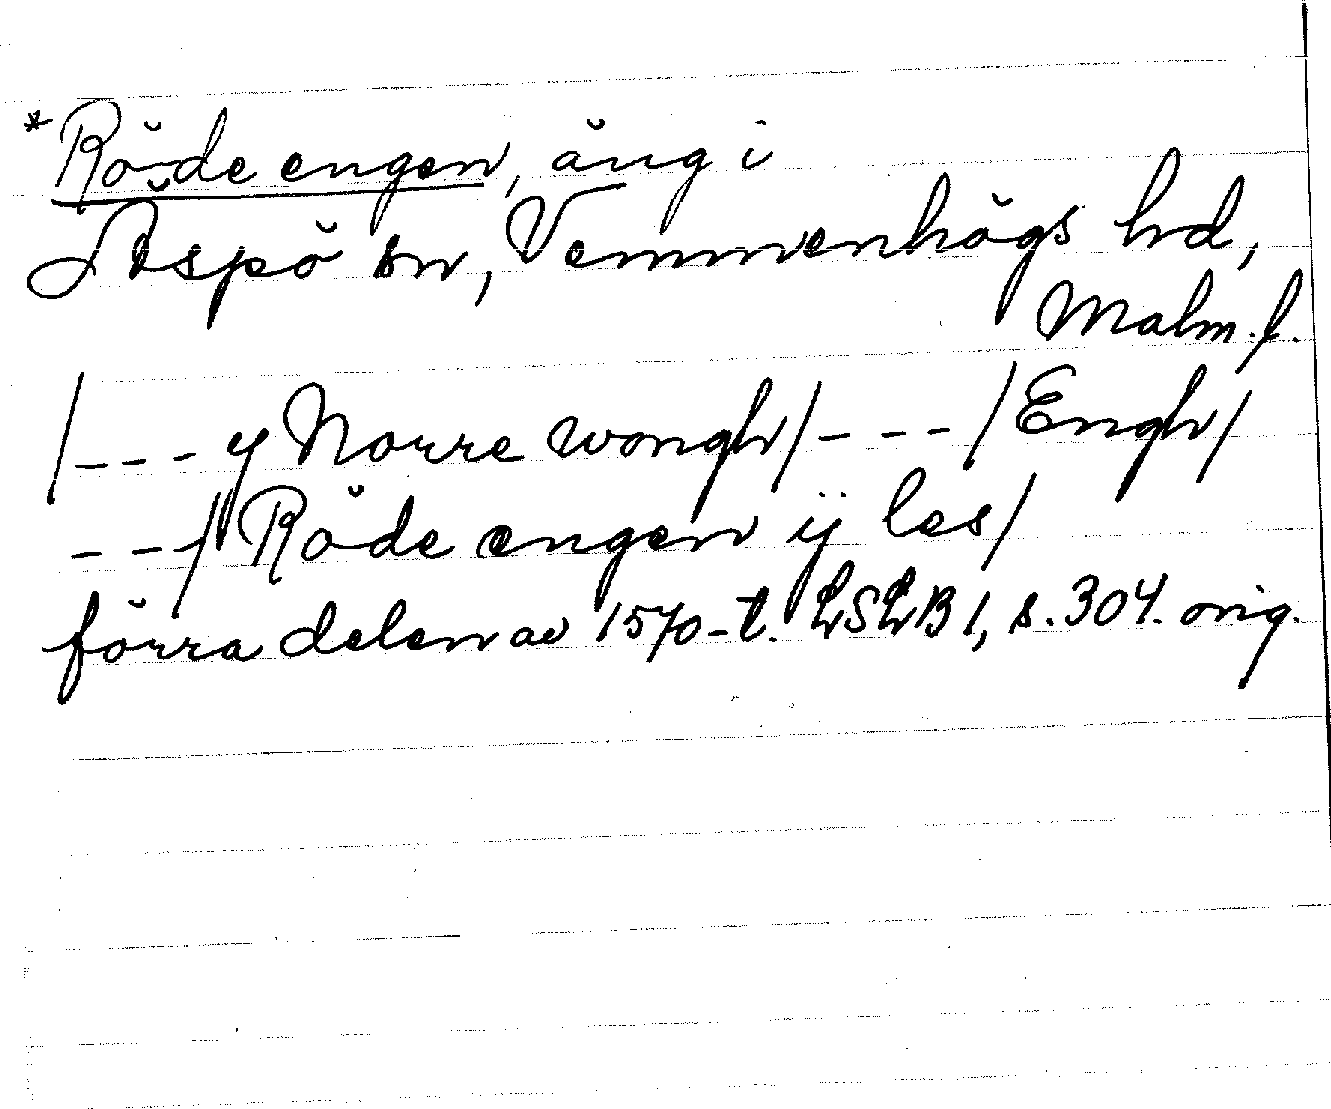 *Röde engen, äng i
Äspö sn, Vemmenhögs hd,
Malm. l.
/--- y Norre wongh/---/Engh/
---/ Röde engen ij les/
förra delen av 1570-t. LSLB 1, s. 304. orig.